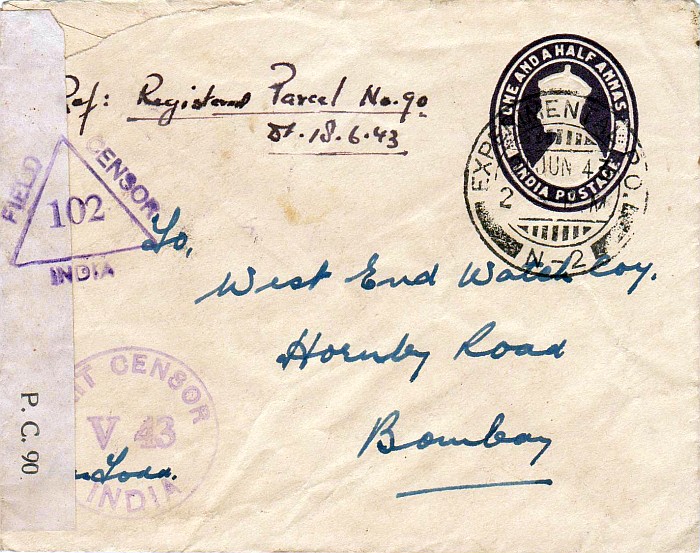 ONE AND A HALF ANNAS
INDIA POSTAGE
Ref: Registered Parcel No. 90
Dt. 18.6.43
EXP
N-2
JUN 4
2
FIELD CENSOR
102
INDIA
To,
West End Watch Coy.
Hornby Road
Bombay
CENSOR
V 43
INDIA
P. C. 90.